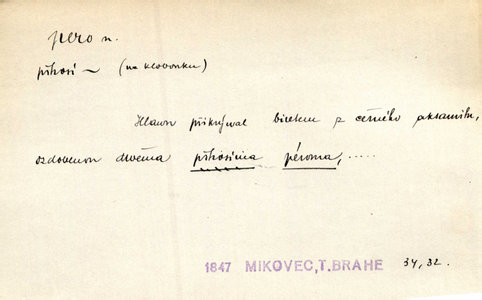 péro n.
pštrosí ~ (na klobouku)
Hlavu přikrýval biretem z černého aksamitu,
ozdobenou dwěma pštrosíma péroma, .....
1847 MIKOVEC, T. BRAHE 34, 32.